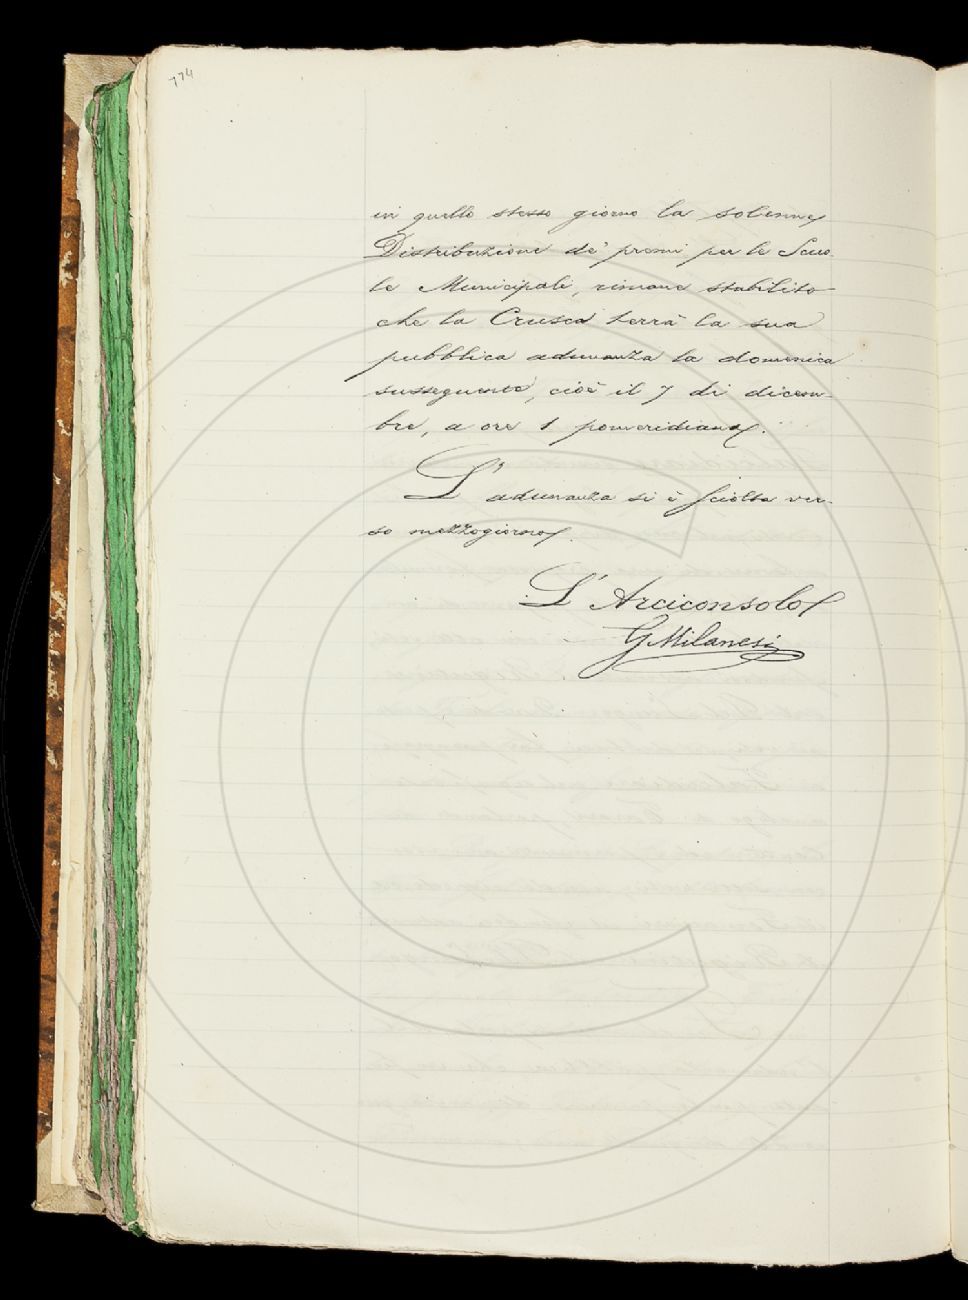 774
in quello stesso giorno la solenne
Distribuzione de' premi per le Scuo
le Municipali, rimane stabilito
che la Crusca terrà la sua
pubblica adunanza la domenica
susseguente, cioè il 7 di dicem-
bre, a ore 1 pomeridiane.
L' adunanza si è sciolta ver-
so mezzogiorno.
L' Arciconsolo
G Milanesi